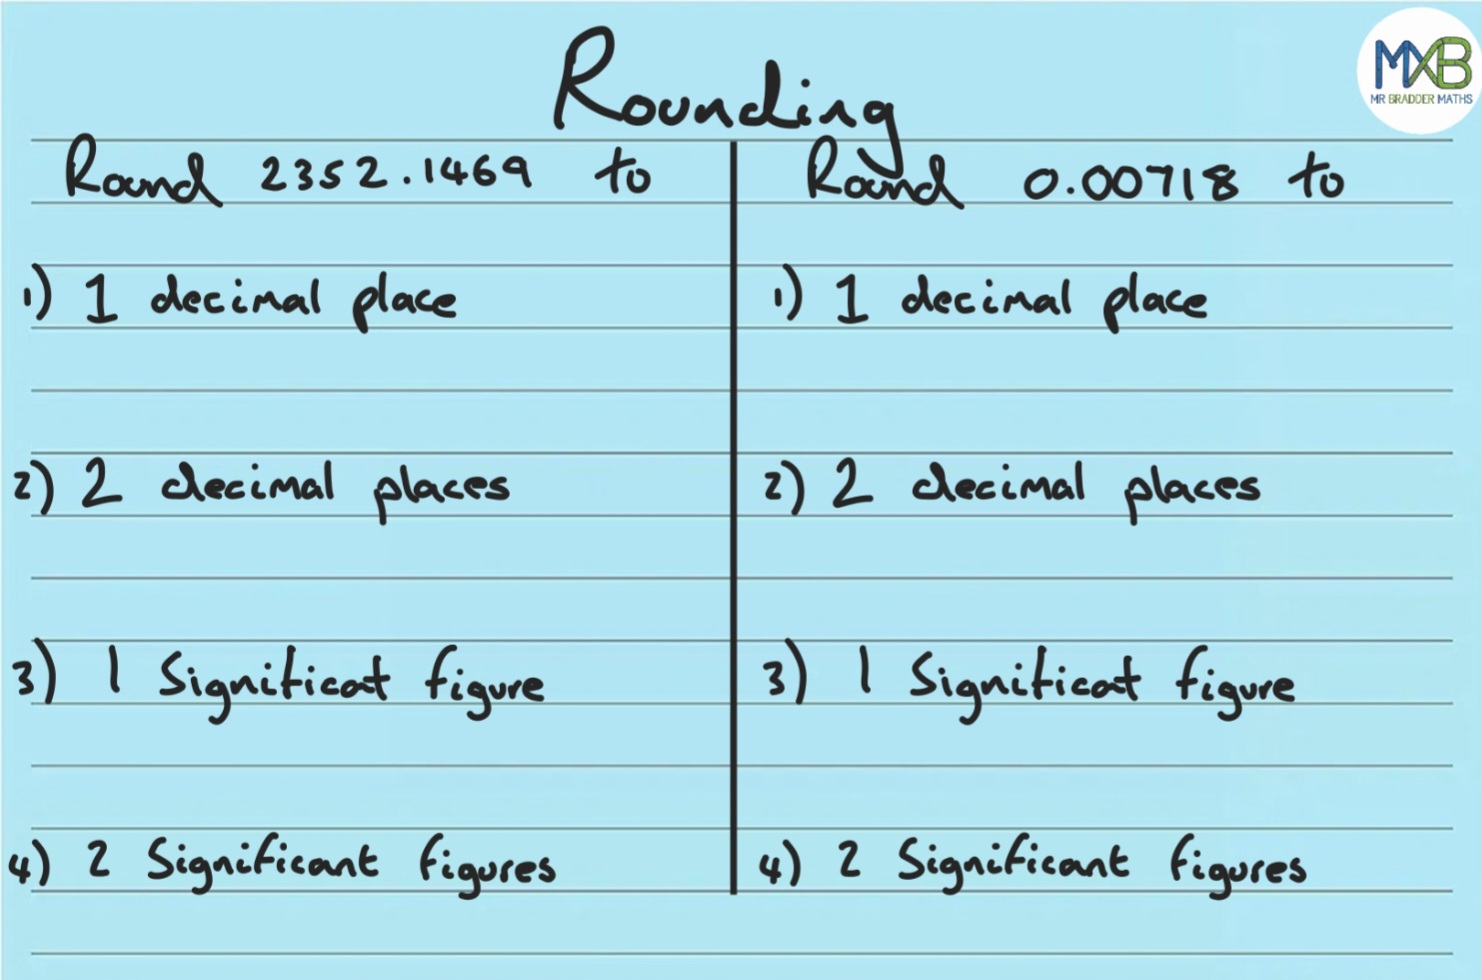 Rounding
MXB
MR BRADDER MATHS
Round 2352.1469 to
1) 1 decimal place
2) 2 decimal places
3) 1 Significat figure
4) 2 Significant figures
Round 0.00718 to
1) 1 decimal place
2) 2 decimal places
3) 1 Significat figure
4) 2 Significant figures